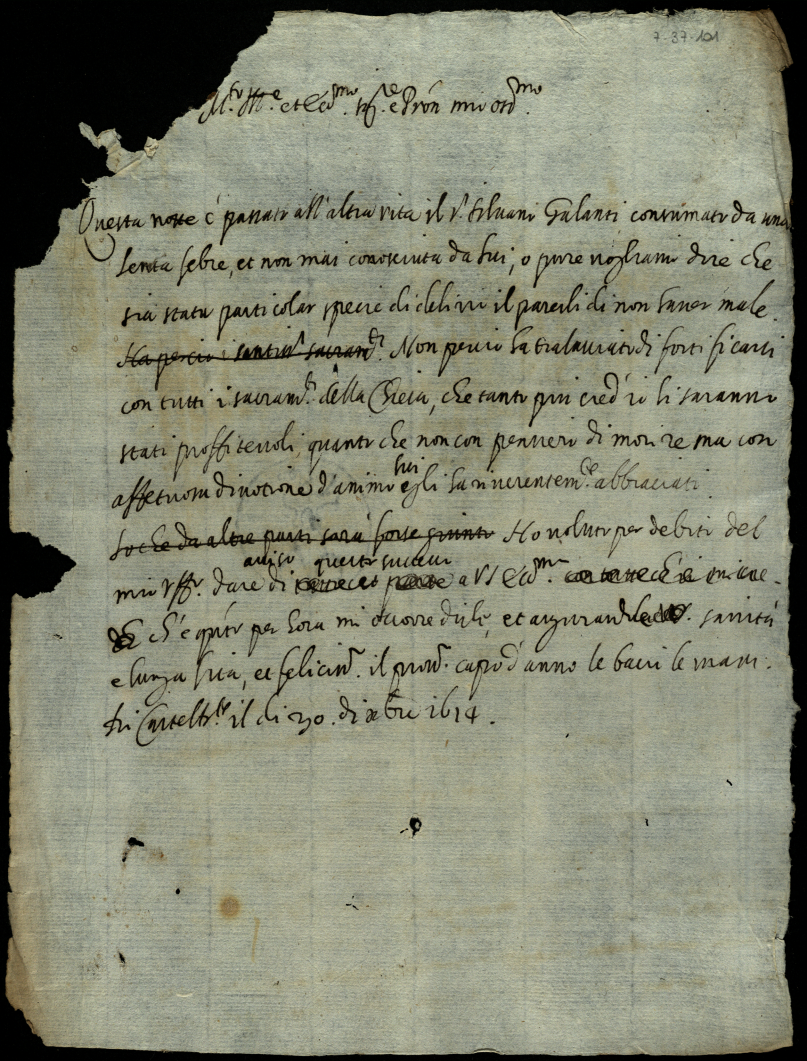 7-37-101
M.to Ill.e et Ecc.mo Sig.re e P'ron mio oss.mo
Questa notte è passato all'altra vita il S.r Silvani Galanti consumato da una
lenta febre, et non mai conosciuta da lui, o pure vogliamo dire che
sia stata particolar specie di delirio il parerli di non haver male.
Ha percio i santiss.i sacram.ti. Non percio ha tralasciato di fortificarsi
con tutti i sacram.ti della Chiesa, che tanto piu cred'io li saranno
stati proffittevoli, quanto che non con pensiero di morire ma con
affettuosa divotione d'animo lui egli ha riverentem.te abbracciati.
So che da altre parti sarà forse giunto Ho voluto per debito del
mio uff.o dare di
aviso questo successo
a V S Ecc.ma
ch'è q.to per hora mi occorre dirle, et augurandole sanità
e lunga vita, et feliciss.o il pross.o capo d'anno le bacio le mani.
Di Castello il di 30. di xbre 1614.